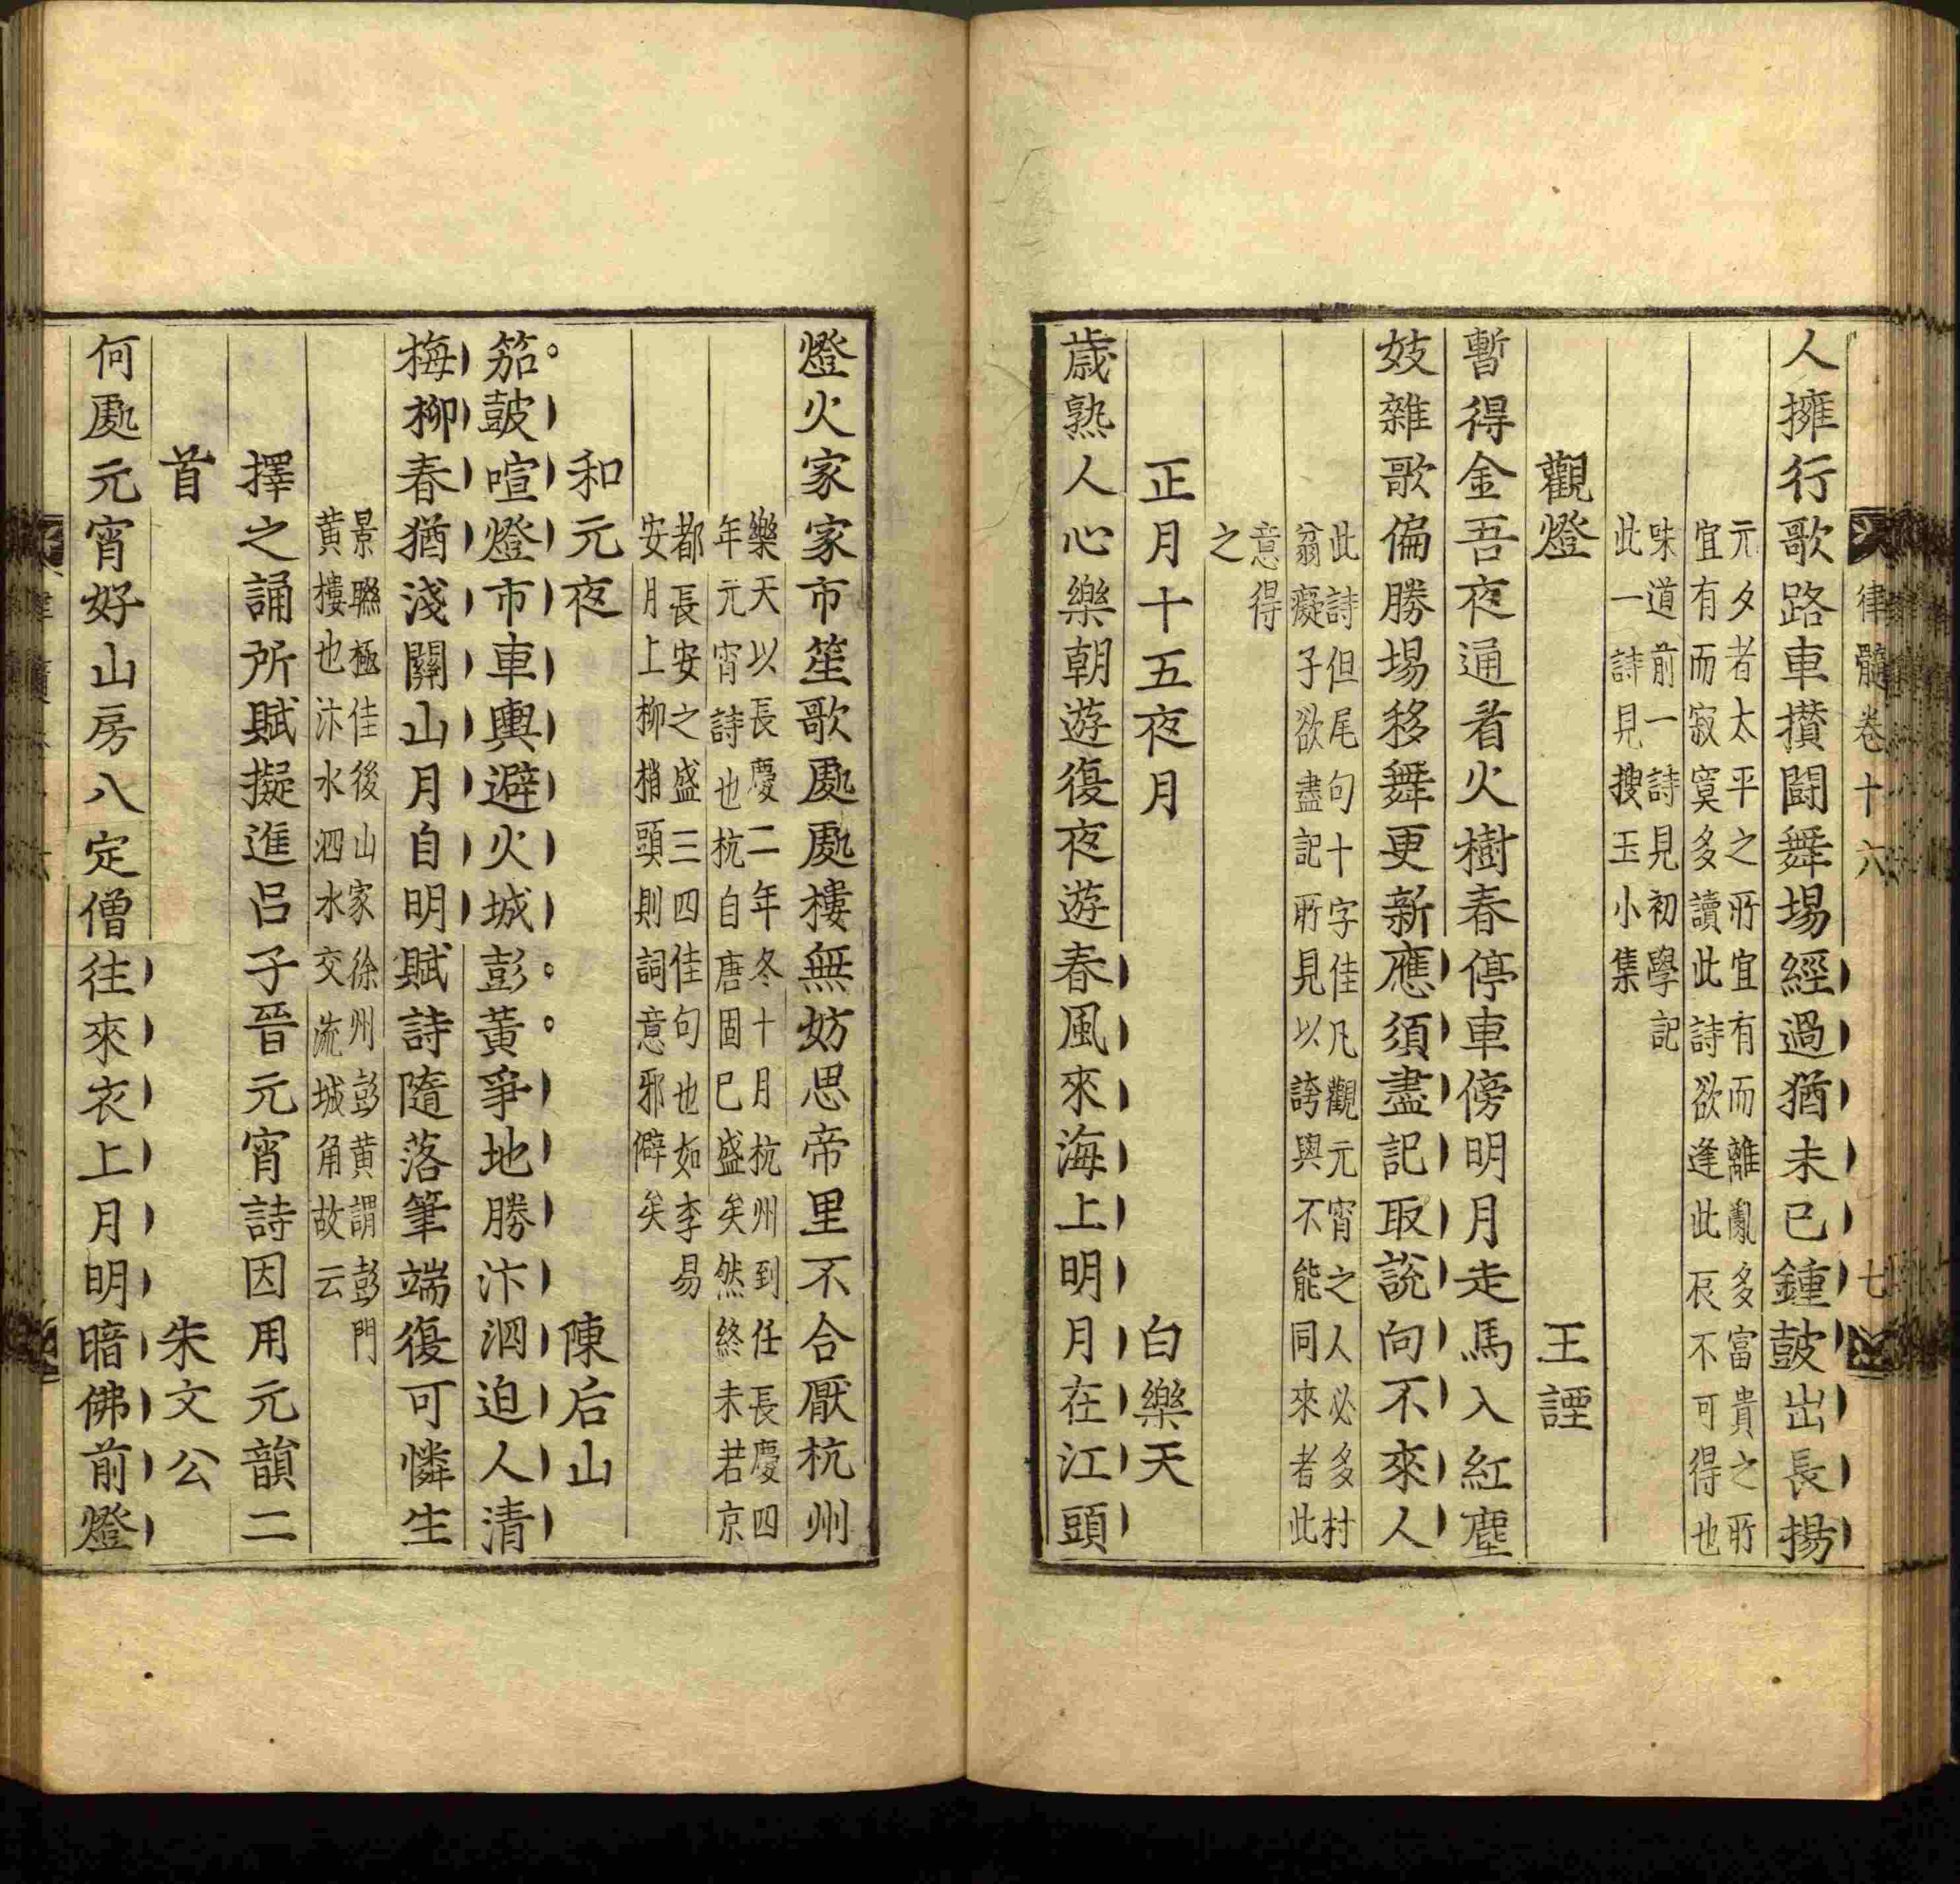 律髓卷十六 七
人擁行歌路車攢鬪舞場經過猶未已鍾鼓出長揚
元夕者太平之所宜有而離亂多富貴之所
宜有而寂寞多讀此詩欲逢此辰不可得也
味道前一詩見初學記
此一詩見搜玉小集
觀燈 王諲
暫得金吾夜通看火樹春停車傍明月走馬入紅塵
妓雜歌偏勝場移舞更新應須盡記取說向不來人
此詩但尾句十字佳凡觀元宵之人必多村
翁癡子欲盡記所見以誇與不能同來者此
意得
之
正月十五夜月 白樂天
歳熟人心樂朝遊復夜遊春風來海上明月在江頭
燈火家家市笙歌處處樓無妨思帝里不合厭杭州
樂天以長慶二年冬十月杭州到任長慶四
年元宵詩也杭自唐固已盛矣然終未若京
都長安之盛三四佳句也如李易
安月上柳梢頭則詞意邪僻矣
和元夜 陳后山
笳鼓喧燈市車輿避火城彭黃爭地勝汴泗迫人清
梅柳春猶淺關山月自明賦詩隨落筆端復可憐生
景聯極佳後山家徐州彭黄謂彭門
黄樓也汴水泗水交流城角故云
擇之誦所賦擬進呂子晉元宵詩因用元韻二
首 朱文公
何處元宵好山房八定僧往來衣上月明暗佛前燈